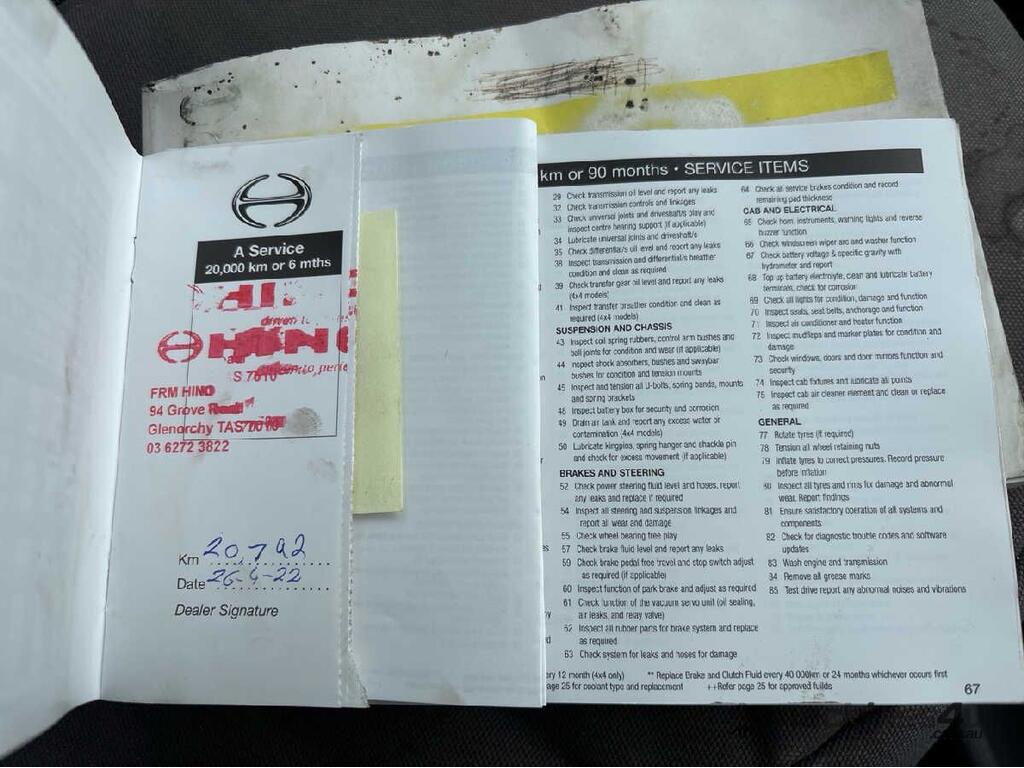 A Service
20,000 km or 6 mths
HINO
S 7010
FRM HINO
94 Grove Road
Glenorchy TAS 7010
03 6272 3822
Km 20,792
Date 26-4-22
Dealer Signature
km or 90 months • SERVICE ITEMS
29 Check transmission oil level and report any leaks
32 Check transmission controls and linkages
33 Check universal joints and driveshaft/s play and
inspect centre bearing support (if applicable)
34 Lubricate universal joints and driveshaft/s
35 Check differential/s oil level and report any leaks
38 Inspect transmission and differential/s breather
condition and clean as required
39 Check transfer gear oil level and report any leaks
(4x4 models)
41 Inspect transfer breather condition and clean as
required (4x4 models)
SUSPENSION AND CHASSIS
43 Inspect coil spring rubbers, control arm bushes and
ball joints for condition and wear (if applicable)
44 Inspect shock absorbers, bushes and swaybar
bushes for condition and tension mounts
45 Inspect and tension all U-bolts, spring bands, mounts
and spring brackets
48 Inspect battery box for security and corrosion
49 Drain air tank and report any excess water or
contamination (4x4 models)
50 Lubricate kingpins, spring hanger and shackle pin
and check for excess movement (if applicable)
BRAKES AND STEERING
52 Check power steering fluid level and hoses, report
any leaks and replace if required
54 Inspect all steering and suspension linkages and
report all wear and damage
55 Check wheel bearing free play
57 Check brake fluid level and report any leaks
59 Check brake pedal free travel and stop switch adjust
as required (if applicable)
60 Inspect function of park brake and adjust as required
61 Check function of the vacuum servo unit (oil sealing,
air leaks, and relay valve)
62 Inspect all rubber parts for brake system and replace
as required
63 Check system for leaks and hoses for damage
64 Check all service brakes condition and record
remaining pad thickness
CAB AND ELECTRICAL
65 Check horn, instruments, warning lights and reverse
buzzer function
66 Check windscreen wiper arc and washer function
67 Check battery voltage & specific gravity with
hydrometer and report
68 Top up battery electrolyte, clean and lubricate battery
terminals, check for corrosion
69 Check all lights for condition, damage and function
70 Inspect seats, seat belts, anchorage and function
71 Inspect air conditioner and heater function
72 Inspect mudflaps and marker plates for condition and
damage
73 Check windows, doors and door mirrors function and
security
74 Inspect cab fixtures and lubricate all points
75 Inspect cab air cleaner element and clean or replace
as required
GENERAL
77 Rotate tyres (if required)
78 Tension all wheel retaining nuts
79 Inflate tyres to correct pressures. Record pressure
before inflation
80 Inspect all tyres and rims for damage and abnormal
wear. Report findings
81 Ensure satisfactory operation of all systems and
components
82 Check for diagnostic trouble codes and software
updates
83 Wash engine and transmission
84 Remove all grease marks
85 Test drive report any abnormal noises and vibrations
ery 12 month (4x4 only) ** Replace Brake and Clutch Fluid every 40 000km or 24 months whichever occurs first
age 25 for coolant type and replacement ++Refer page 25 for approved fluids
67